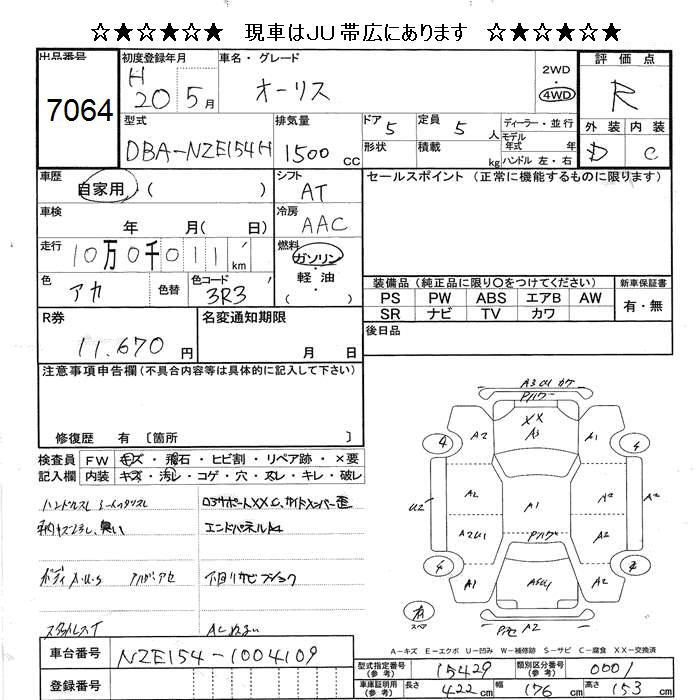 ☆★☆★☆★ 現車はJU帯広にあります ☆★☆★☆★
出品番号
7064
初度登録年月
H 20 5月
車名・グレード
オーリス
2WD
・
4WD
評価点
R
外装 内装
D C
型式
DBA-NZE154H
排気量
1500 cc
ドア 5
定員 5 人
ディーラー・並行
モデル
年式 年
形状
積載 kg
ハンドル 左・右
車歴
自家用 ( )
シフト
AT
セールスポイント (正常に機能するものに限ります)
車検
年 月( 日)
冷房
AAC
走行
10万0千011 km
燃料
ガソリン・
軽油・
( )
色
アカ
色替
色コード
3R3
装備品 (純正品に限り○をつけてください)
PS PW ABS エアB AW
SR ナビ TV カワ
新車保証書
有・無
後日品
R券
11,670 円
名変通知期限
月 日
注意事項申告欄 (不具合内容等は具体的に記入して下さい)
修復歴 有 〔箇所 〕
検査員 FW キズ・飛石・ヒビ割・リペア跡・×要
記入欄 内装 キズ・汚レ・コゲ・穴・スレ・キレ・破レ
ハンドルスレ シートスレ
臭い
エンドパネルA4
ボディA・U・S
下回りサビ
スタットレスT
A3U1 カケ
XX
A3
A2
A1
4
4
U2
A2
A1
A2
A2U1
A2
A1
スペア
A2
A-キズ E-エクボ U-凹み W-補修跡 S-サビ C-腐食 XX-交換済
車台番号
NZE154-1004109
登録番号
型式指定番号
(参考)
15429
類別区分番号
(参考)
0001
車庫証明用
(参考)
長さ 422 cm 幅 176 cm 高さ 153 cm